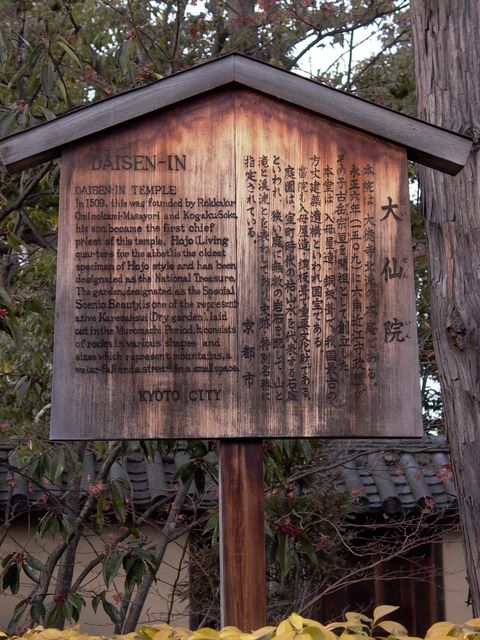 DAISEN-IN
DAISEN-IN TEMPLE
In 1509, this was founded by Rokkaku
Ominokami-Masayori and KogakuSoko,
his son became the first chief
priest of this temple. Hojo (Living
quarters for the abbot) is the oldest
specimen of Hojo style and has been
designated as the National Treasure.
The garden, designated as the Special
Scenic Beauty, is one of the represent-
ative Karesansui (Dry garden) laid
out in the Muromachi Period. It consists
of rocks in various shapes and
sizes which represent mountains, a
water fall and a stream in a small space.
KYOTO CITY
大仙院
だいせんいん
本院は、大徳寺北派の本庵である。
永正六年(一五〇九)に六角近江守政頼が
その子古岳宗亘を開祖として創立した。
本堂は、入母屋造、銅板葺で、我国最古の
方丈建築遺構といわれ国宝である。
書院も入母屋造、檜皮葺で重要文化財である。
庭園は、室町時代の枯山水を代表する石庭
といわれ、狭い庭に無数の岩石を配して、山と
滝と渓流とを表しており、史跡・特別名勝に
指定されている。
京都市